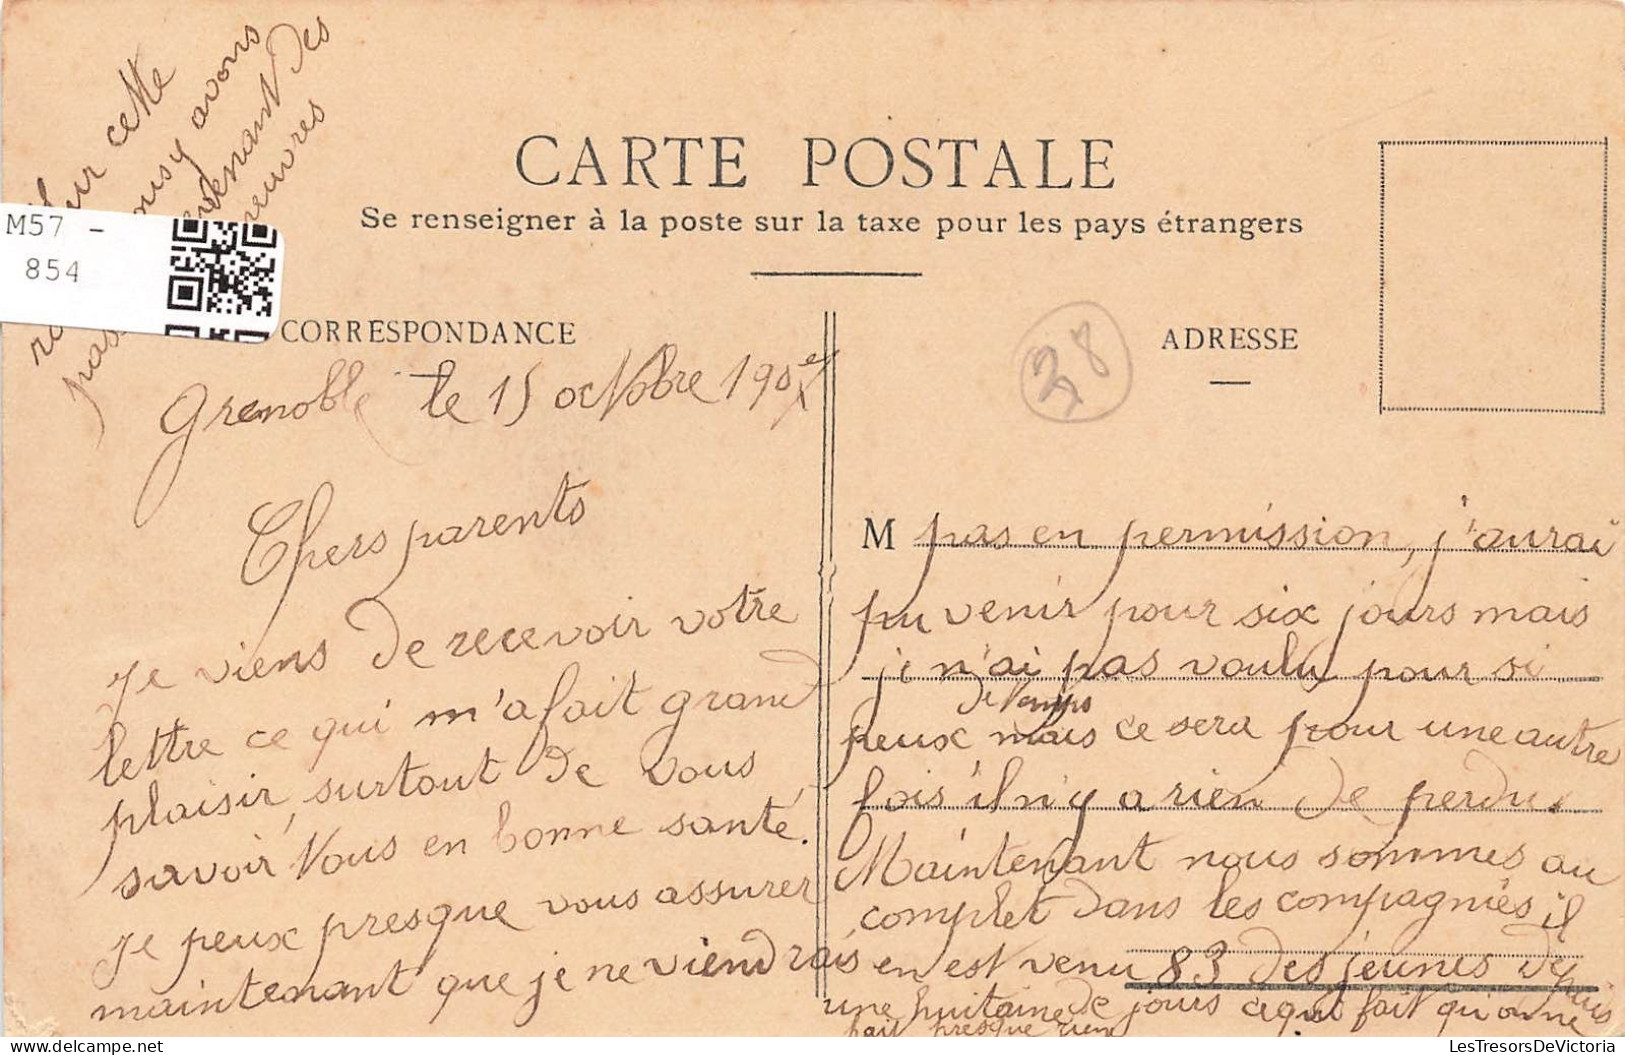 cette
avons
maintenant des
M57 -
854
CARTE POSTALE
Se renseigner à la poste sur la taxe pour les pays étrangers
CORRESPONDANCE
ADRESSE
38
Grenoble le 15 octobre 190
Chers parents
Je viens de recevoir votre
lettre ce qui m'a fait grand
plaisir, surtout de vous
savoir vous en bonne santé.
Je peux presque vous assurer
maintenant que je ne viendrais
M pas en permission, j'aurai
pu venir pour six jours mais
je n'ai pas voulu pour si
de temps
peux mais ce sera pour une autre
fois il n'y a rien de perdu.
Maintenant nous sommes au
complet dans les compagnies il
en est venu 83 des jeunes depuis
une huitaine de jours ce qui fait qu'on ne
fait presque rien
LesTresorsDeVictoria.com